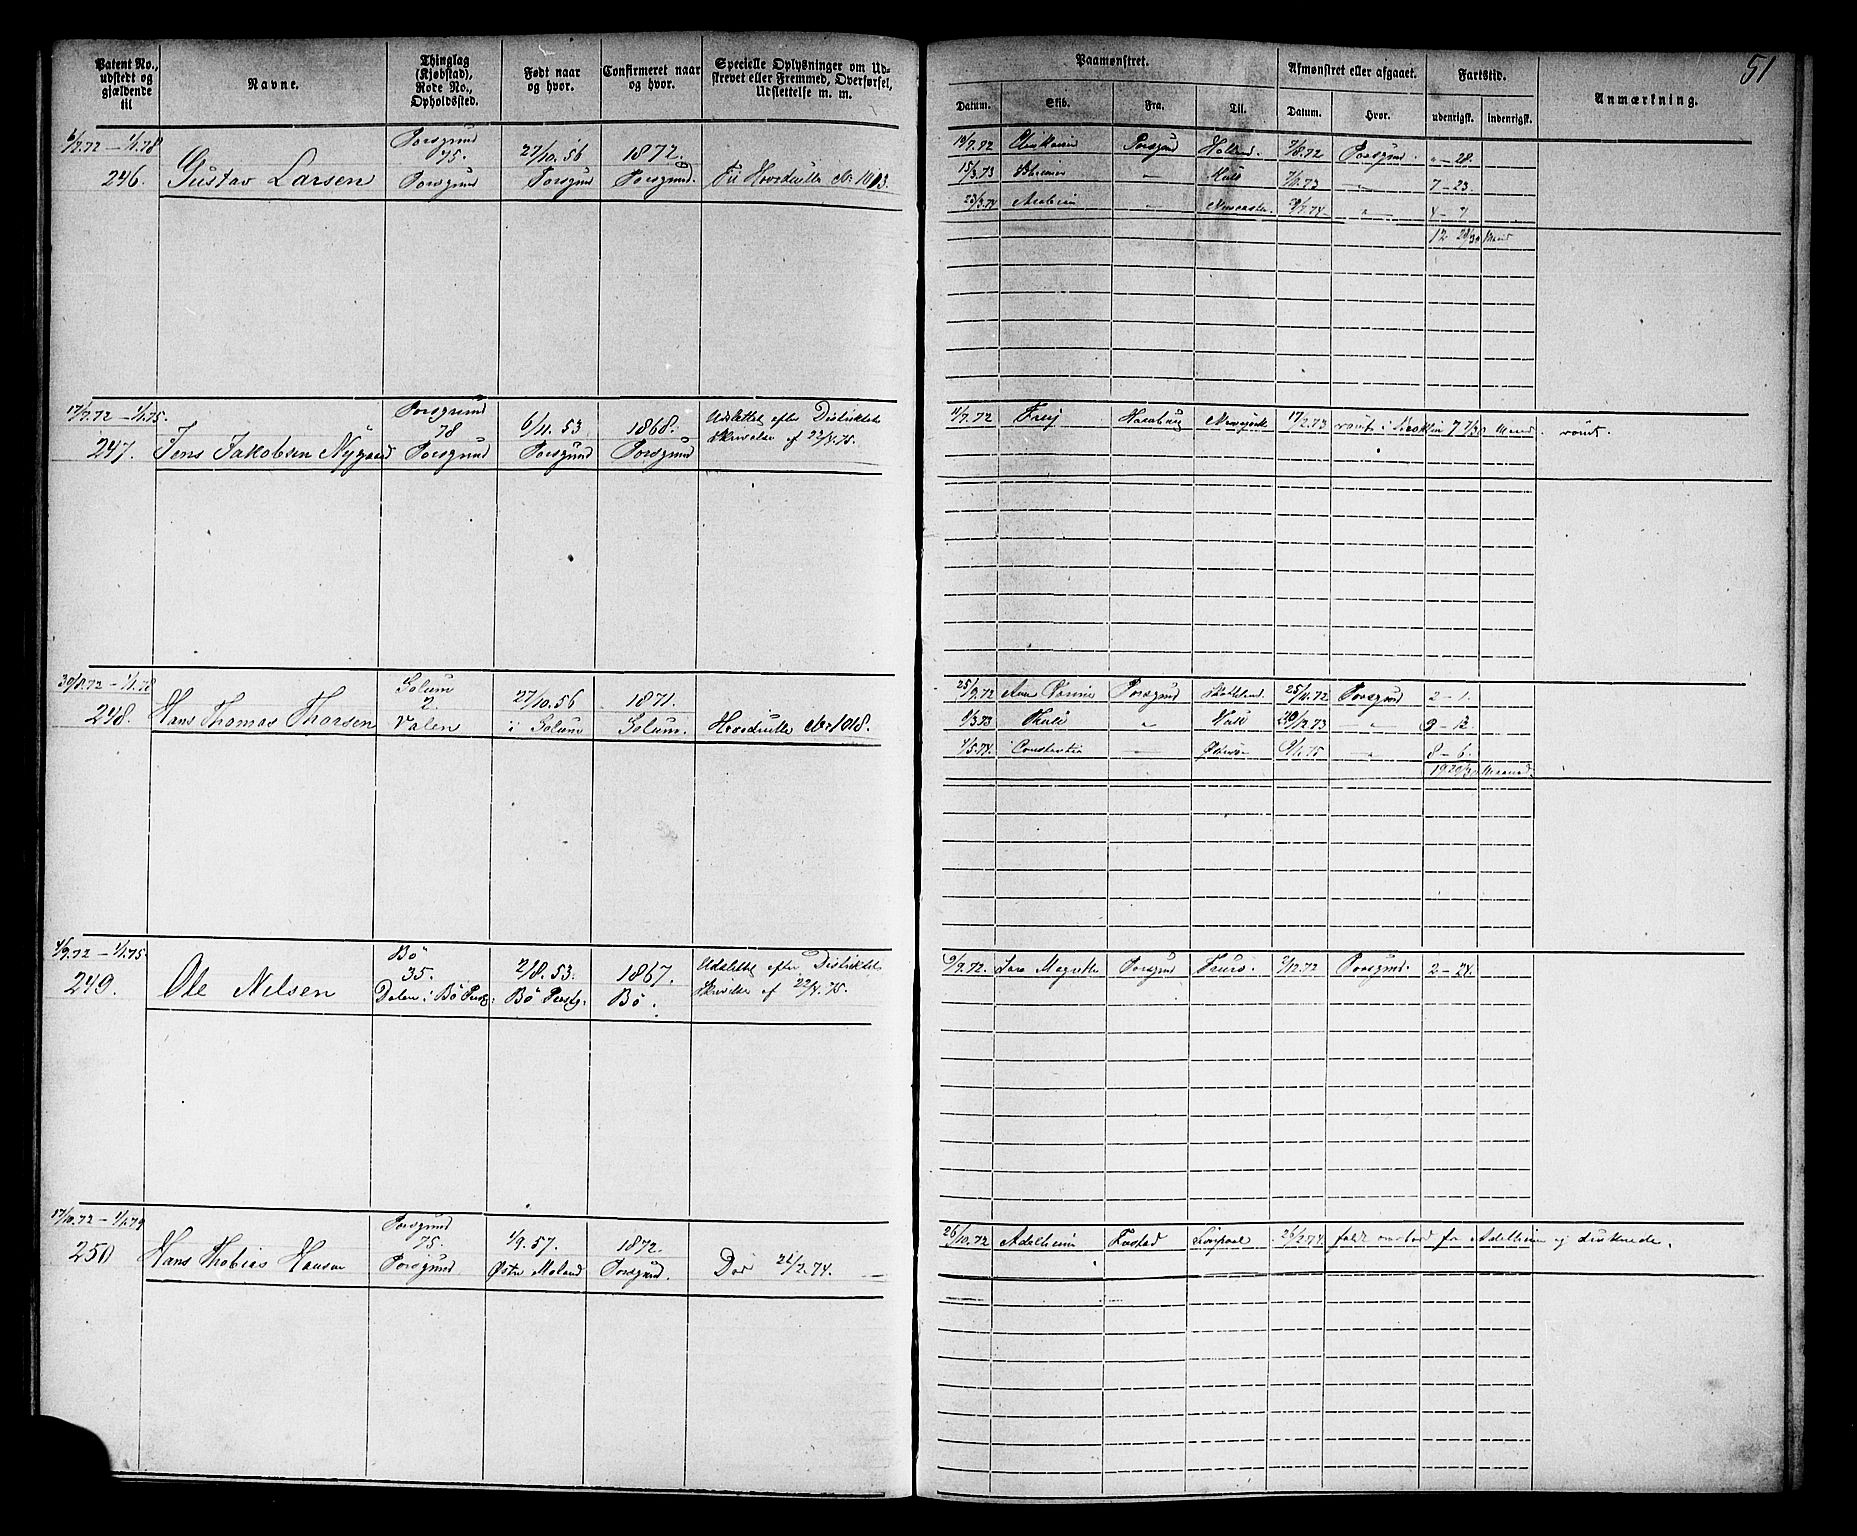 51
Patent No., udstedt og gjældende til
Navne.
Thinglag (Kjøbstad), Rode No., Opholdssted.
Født naar og hvor.
Confirmeret naar og hvor.
Specielle Oplysninger om Udskrevet eller Fremmed, Overførsel, Udslettelse m. m.
Paamønstret.
Afmønstret eller afgaaet.
Fartstid.
Anmærkning.
Datum. Skib. Fra. Til. Datum. Hvor. udenrigsk. indenrigsk.
6/7.72 – 1/1.78 Porsgrund 75. 27/10.56 1872.
246. Gustav Larsen Porsgrund Porsgrund Porsgrund. Til Hovedrulle No 1013.
19/7.72 Porsgrund Holland 7/8.72 Porsgrund. „ – 28.
15/3.73 „ Hull 7/11.73 „ 7 – 23.
23/3.74 „ Newcastle 29/7.74 „ 4 – 7
12 28/30 Maand
17/7.72 – 1/1.75. Porsgrund 78 6/11.53 1868. Udslettet efter Distriktets
247. Jens Jakobsen Nygaard Porsgrund Porsgrund Porsgrund Skrivelse af 22/4.75.
11/7.72 Freij Newyork 17/2.73 rømt i 7 7/30 Maaned. rømt.
30/8.72 – 1/1.78 Solum 2. 27/10.56 1871.
248. Hans Thomas Thorsen Valen i Solum Solum. Hovedrulle No 1018.
25/9.72 Porsgrund 25/11.72 Porsgrund 2 – 1.
Thule „ Hull „ 9 – 13
4/5.74. Constantia „ 8 – 6.
19 20/30 Maaned.
4/9.72 – 1/1.75. Bø 35. 2/8.53. 1867. Udslettet efter Distriktets
249. Ole Nilsen Dalen i Bø Præstg: Bø Præstg: Bø. Skrivelse af 22/4.75.
9/9.72. Porsgrund 3/12.72 Porsgrund. 2 – 24.
17/10.72 – 1/1.79 Porsgrund 75. 1/9.57. 1872.
250 Hans Thobias Hansen Porsgrund Østre Moland Porsgrund. Død 26/2.74.
26/10.72 Adelheim 26/2.74 faldt overbord fra Adelheim og druknede.